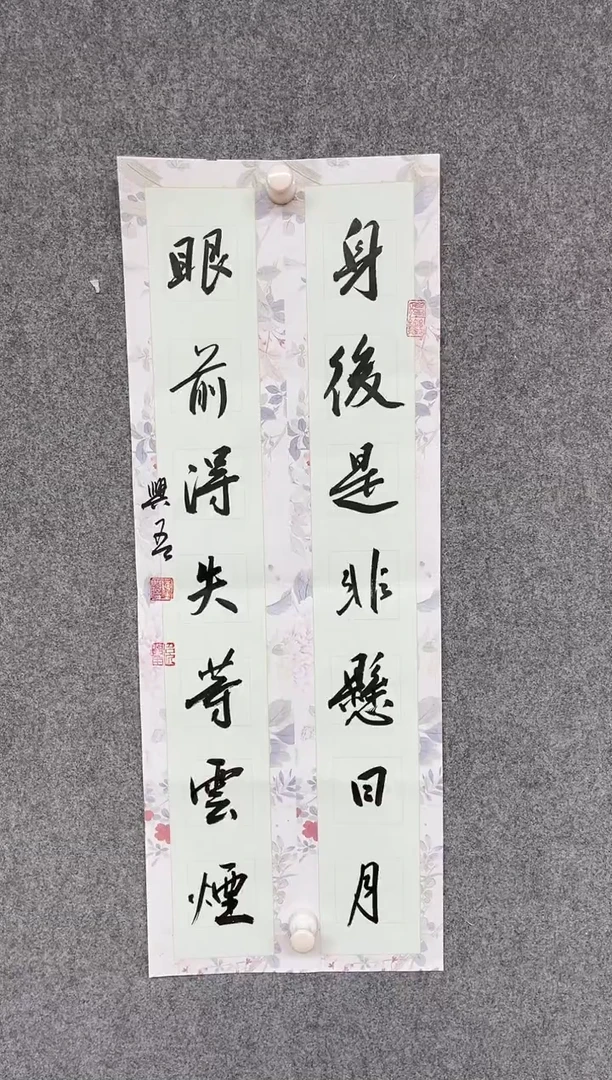 身後是非懸日月
眼前得失等雲煙
興吾